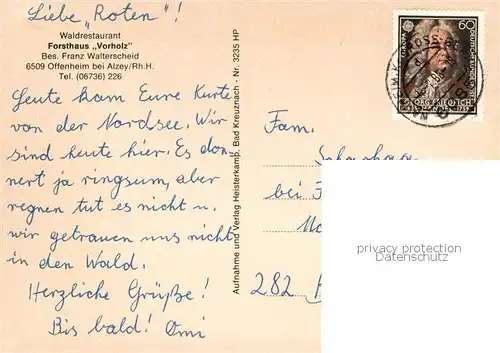 Liebe „Roten"!
Waldrestaurant
Forsthaus „Vorholz"
Bes. Franz Walterscheid
6509 Offenheim bei Alzey/Rh.H.
Tel. (06736) 226
Heute kam Eure Karte
von der Nordsee. Wir
sind heute hier. Es don-
nert ja ringsum, aber
regnen tut es nicht u.
wir getrauen uns nicht
in den Wald.
Herzliche Grüße!
Bis bald! Omi
Aufnahme und Verlag Heisterkamp, Bad Kreuznach - Nr. 3235 HP
60
DEUTSCHE BUNDESPOST
GEORG FRIEDRICH
Fam.
bei
282
privacy protection
Datenschutz